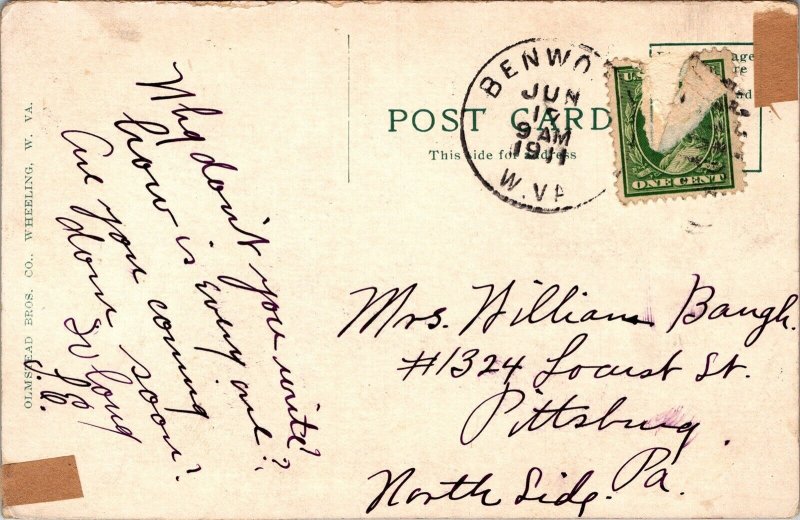 OLMSTEAD BROS. CO., WHEELING, W. VA.
Why don't you write?
how is every one?
Are you coming
down soon?
So long
POST CARD
This side for address
BENWO
JUN
9 AM
1911
W. VA
U.S.
ONE CENT
Mrs. William Baugh.
#1324 Locust St.
Pittsburg,
Pa.
North Side.